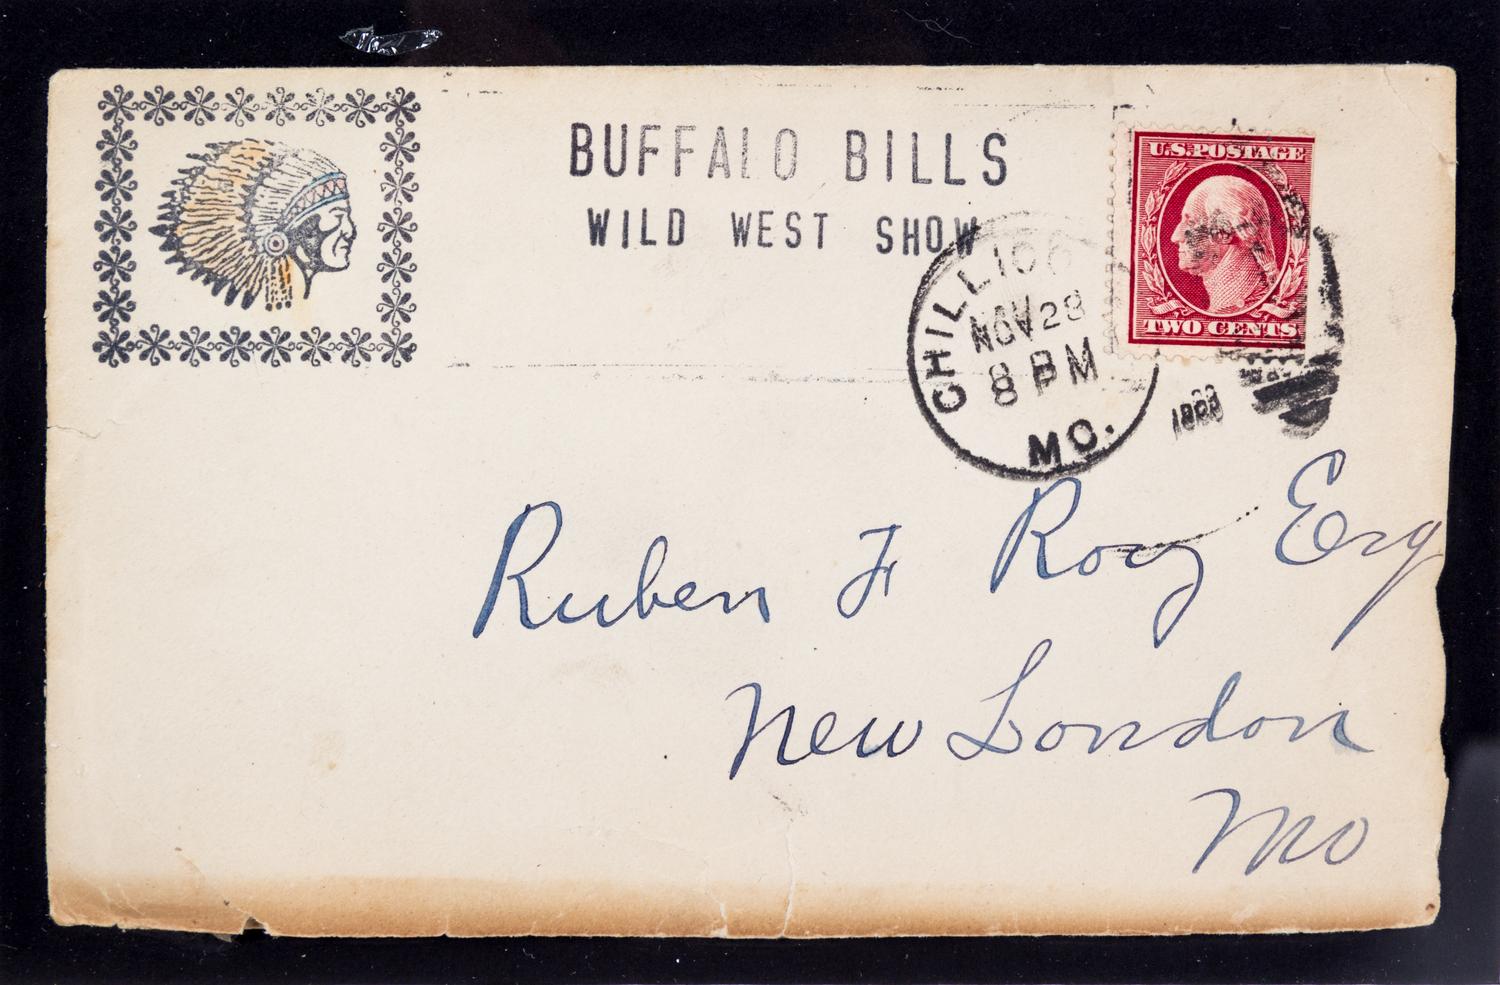 BUFFALO BILLS
WILD WEST SHOW
U.S.POSTAGE
TWO CENTS
CHILLICO
NOV 28
8 PM
MO.
Ruben F Roy Esq
New London
Mo